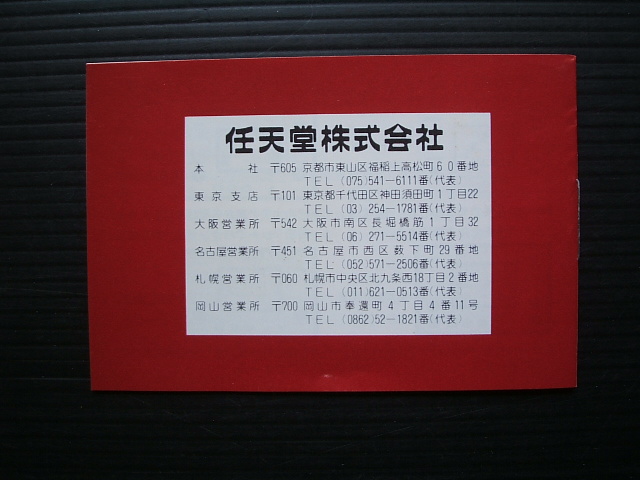 任天堂株式会社
本社 〒605 京都市東山区福稲上高松町60番地
TEL (075)541-6111番(代表)
東京支店 〒101 東京都千代田区神田須田町1丁目22
TEL (03) 254-1781番(代表)
大阪営業所 〒542 大阪市南区長堀橋筋1丁目32
TEL (06) 271-5514番(代表)
名古屋営業所 〒451 名古屋市西区薮下町29番地
TEL (052)571-2506番(代表)
札幌営業所 〒060 札幌市中央区北九条西18丁目2番地
TEL (011)621-0513番(代表)
岡山営業所 〒700 岡山市奉還町4丁目4番11号
TEL (0862)52-1821番(代表)